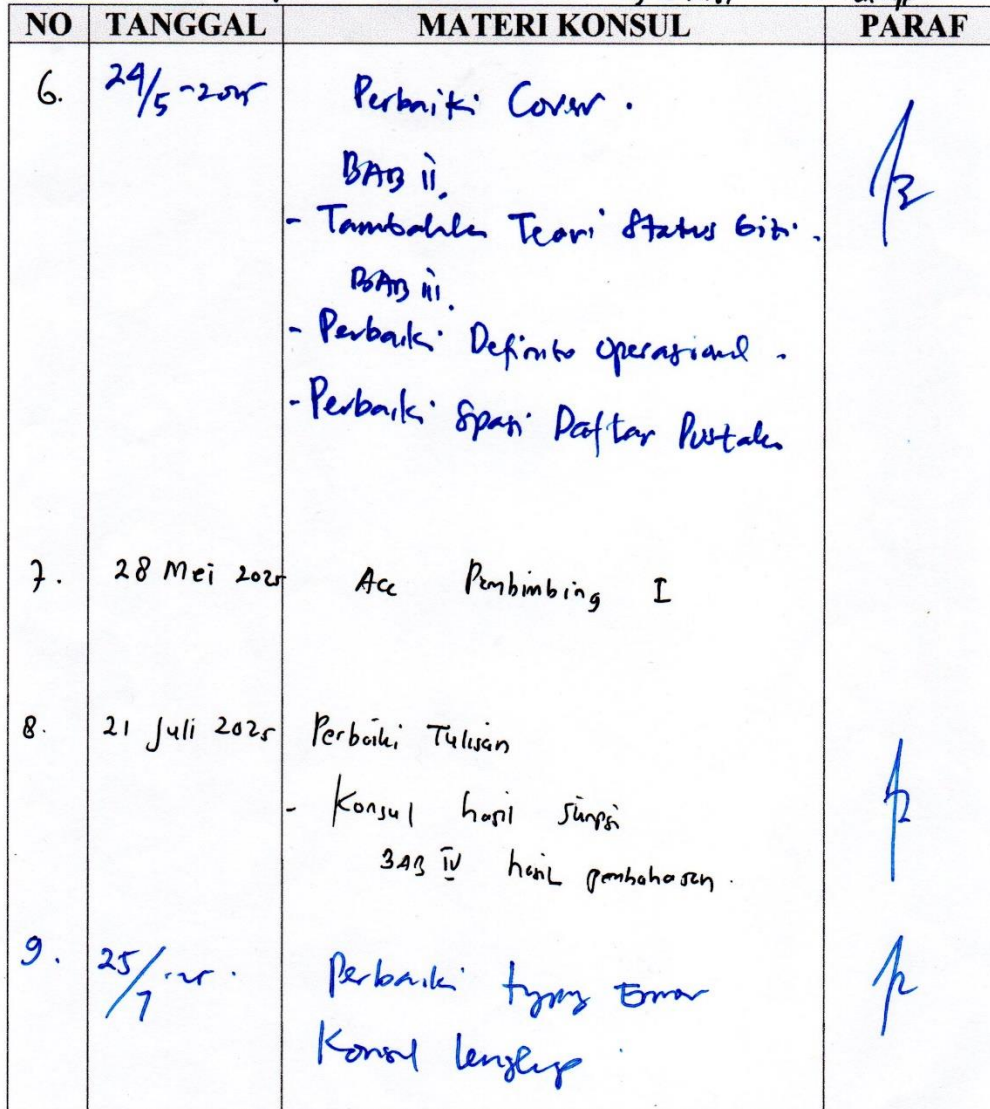 NO TANGGAL MATERI KONSUL PARAF
6. 24/5-2025 Perbaiki Cover.
BAB ii.
- Tambahkan Teori Status Gizi.
BAB iii.
- Perbaiki Definisi Operasional.
- Perbaiki Spasi Daftar Pustaka
7. 28 Mei 2025 Acc Pembimbing I
8. 21 Juli 2025 Perbaiki Tulisan
- Konsul hasil
BAB IV hasil pembahasan.
9. 25/7-25. Perbaiki typing Error
Konsul lengkap.